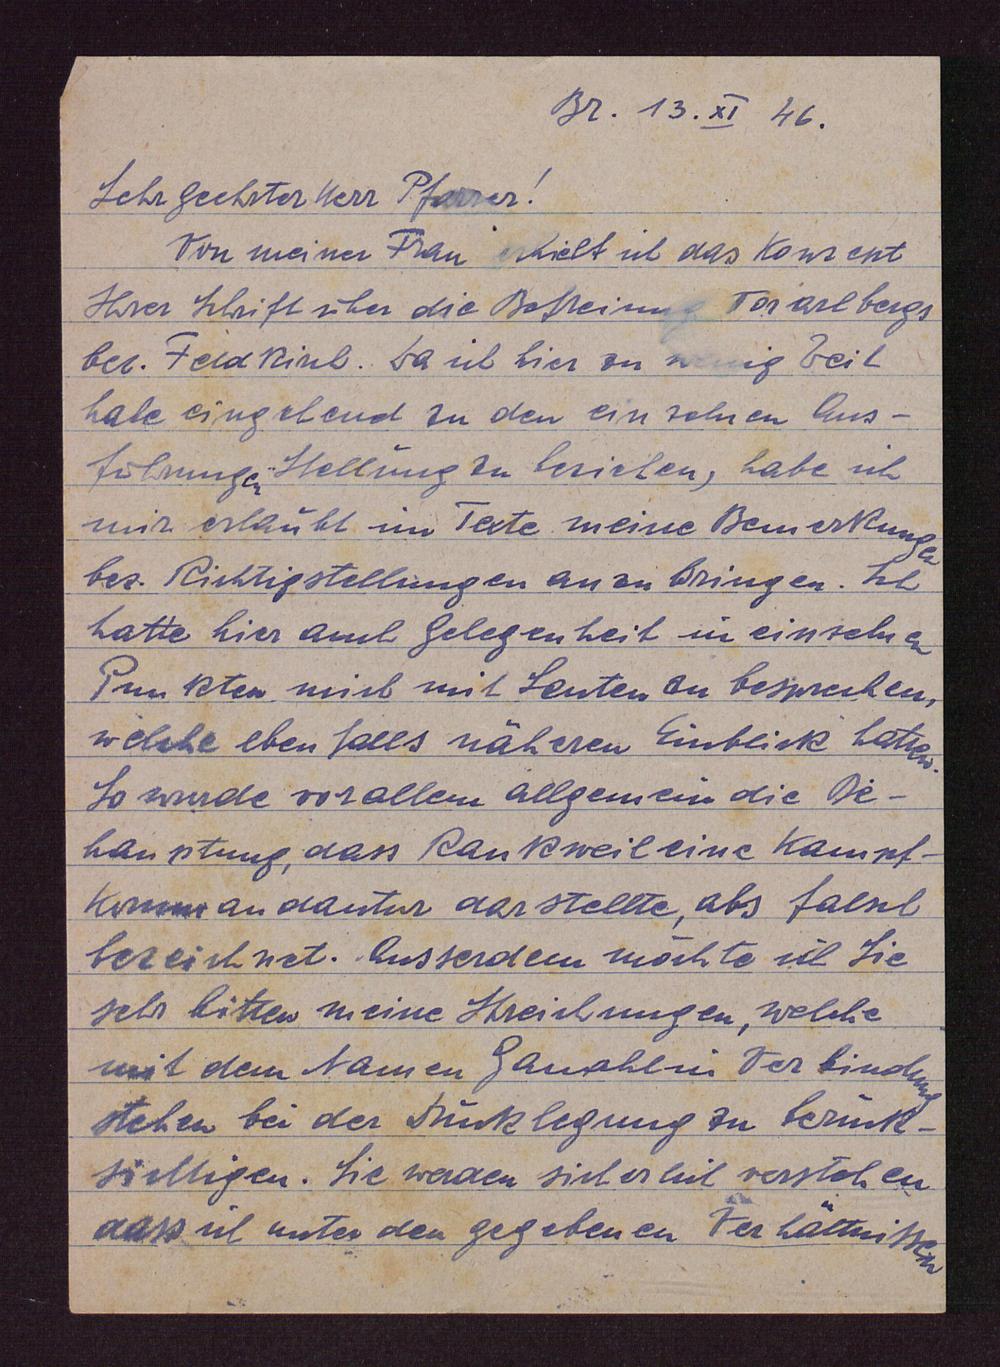 Br. 13. XI 46.
Sehr geehrter Herr Pfarrer!
Von meiner Frau erhielt ich das Konzept
Ihrer Schrift über die Befreiung Vorarlbergs
bez. Feldkirch. Da ich hier zu wenig Zeit
habe eingehend zu den einzelnen Aus-
führungen Stellung zu beziehen, habe ich
mir erlaubt im Texte meine Bemerkungen
bez. Richtigstellungen anzubringen. Ich
hatte hier auch Gelegenheit in einzelnen
Punkten mich mit Leuten zu besprechen,
welche ebenfalls näheren Einblick hatten.
So wurde vorallem allgemein die Be-
hauptung, dass Rankweil eine Kampf-
kommandantur darstellte, als falsch
bezeichnet. Ausserdem möchte ich Sie
sehr bitten meine Streichungen, welche
mit dem Namen Gamohl in Verbindung
stehen bei der Drucklegung zu berück-
sichtigen. Sie werden sicherlich verstehen
dass ich unter den gegebenen Verhältnissen